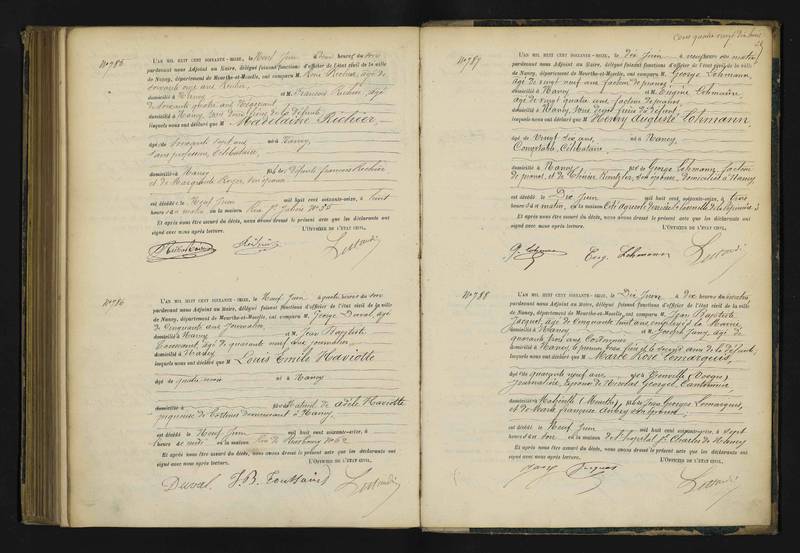 N° 785
L'AN MIL HUIT CENT SOIXANTE-SEIZE, le Neuf Juin heures du
pardevant nous Adjoint au Maire, délégué faisant fonctions d'officier de l'état civil de la ville
de Nancy, département de Meurthe-et-Moselle, ont comparu M Richier, âgé de
soixante onze ans Rentier,
domicilié à Nancy et M François Richier, âgé
de soixante quatre ans
domicilié à Nancy, tous deux frères de la défunte
lesquels nous ont déclaré que M Madelaine Richier
âgé de soixante sept ans né à Nancy
sans profession, Célibataire,
domicilié à Nancy fils de Défunts François Richier
et de Marguerite Royer, son épouse
est décédé le Neuf Juin mil huit cent soixante-seize, à huit
heures du matin en la maison Rue St Julien N° 35
Et après nous être assuré du décès, nous avons dressé le présent acte que les déclarants ont
signé avec nous après lecture. L'OFFICIER DE L'ÉTAT CIVIL,
N° 786
L'AN MIL HUIT CENT SOIXANTE-SEIZE, le Neuf Juin à quatre heures du soir
pardevant nous Adjoint au Maire, délégué faisant fonctions d'officier de l'état civil de la ville
de Nancy, département de Meurthe-et-Moselle, ont comparu M Duval, âgé
de Cinquante ans Journalier
domicilié à Nancy et M Jean Baptiste
Toussaint, âgé de quarante neuf ans journalier
domicilié à Nancy
lesquels nous ont déclaré que M Louis Emile Haviotte
âgé de quatre mois né à Nancy
domicilié à fils Naturel de Adèle Haviotte
piqueuse de Bottines demeurant à Nancy.
est décédé le Neuf Juin mil huit cent soixante-seize, à
heure de midi en la maison Rue de Strasbourg N° 62
Et après nous être assuré du décès, nous avons dressé le présent acte que les déclarants ont
signé avec nous après lecture. L'OFFICIER DE L'ÉTAT CIVIL,
Duval J. B. Toussaint
Cent quatre vingt dix huit
N° 787
L'AN MIL HUIT CENT SOIXANTE-SEIZE, le Dix Juin à heures du matin
pardevant nous Adjoint au Maire, délégué faisant fonctions d'officier de l'état civil de la ville
de Nancy, département de Meurthe-et-Moselle, ont comparu M George Lohmann,
âgé de vingt neuf ans facteur de pianos,
domicilié à Nancy et M Eugène Lohmann
âgé de vingt quatre ans, facteur de pianos,
domicilié à Nancy, tous deux frères du défunt
lesquels nous ont déclaré que M Henry Auguste Lohmann.
âgé de Vingt six ans, né à Nancy.
Comptable, Célibataire.
domicilié à Nancy fils de George Lohmann, facteur
de pianos, et de son épouse, domiciliés à Nancy
est décédé le Dix Juin mil huit cent soixante-seize, à trois
heures du matin, en la maison
Et après nous être assuré du décès, nous avons dressé le présent acte que les déclarants ont
signé avec nous après lecture. L'OFFICIER DE L'ÉTAT CIVIL,
G. Lohmann Eug. Lohmann
N° 788
L'AN MIL HUIT CENT SOIXANTE-SEIZE, le Dix Juin à Dix heures du matin
pardevant nous Adjoint au Maire, délégué faisant fonctions d'officier de l'état civil de la ville
de Nancy, département de Meurthe-et-Moselle, ont comparu M Jean Baptiste
Jacquot, âgé de Cinquante huit ans employé à la Mairie
domicilié à Nancy et M Joseph Jany, âgé de
quarante trois ans Cordonnier
domicilié à Nancy, le premier
lesquels nous ont déclaré que M Marie Rose Lemarquis,
âgé de quarante neuf ans née à (Vosges)
journalière, épouse de Nicolas Georgel, Cantonnier
domicilié à (Meurthe) fille de Jean Georges Lemarquis,
et de Marie Françoise Aubry son épouse.
est décédé le Neuf Juin mil huit cent soixante-seize, à sept
heures du soir en la maison de l'hôpital St Charles de Nancy
Et après nous être assuré du décès, nous avons dressé le présent acte que les déclarants ont
signé avec nous après lecture. L'OFFICIER DE L'ÉTAT CIVIL,